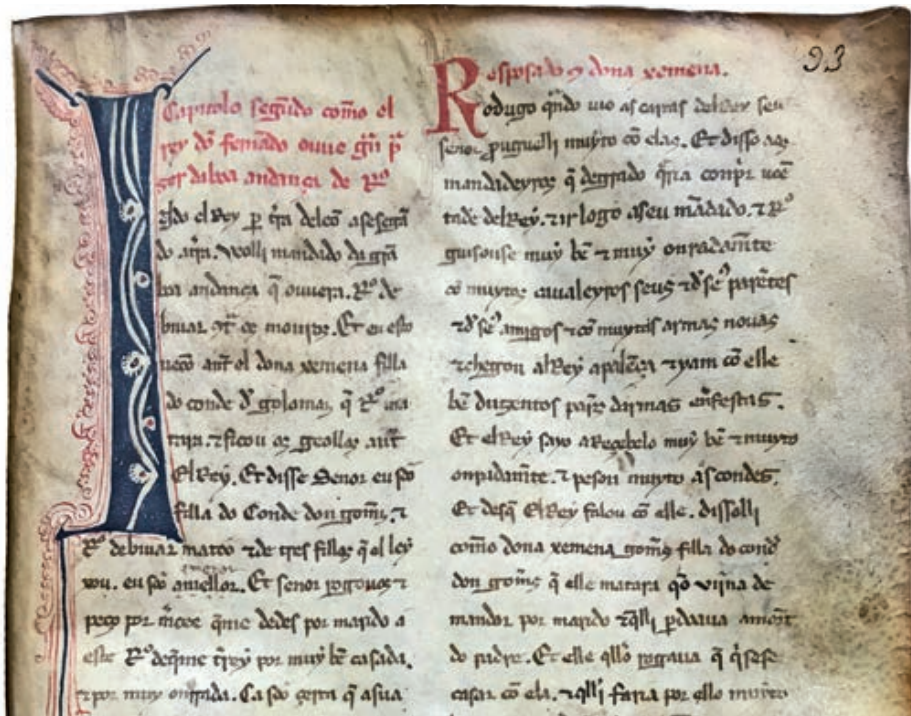 Capitolo segũdo como el
rey dõ fernãdo ouue
boa andança de Rº
el Rey
do . Wolli mandado da grã
boa andança q̃ ouuera . Rº de
biuar . Et en esto
ueõ ant̃ el dona xemena filla
do conde dõ gomas q̃ Rº ma
tara . τ ficou os geollos ant̃
El Rey . Et disse Senor eu sõo
filla do Conde don gomes τ
Rº de biuar matou τ de tres fillas q̃ el ley
xou . eu sõo a mellor menor . Et senor rogouos τ
peço por mẽcee q̃ me dedes por marido a
este Rº de q̃ me tẽrrey por muy bẽ casada .
τ por muy onrrada . Ca sõo çerta q̃ a sua
93
esposado cõ dona xemena .
Rodrigo qñdo uio as cartas del Rey seu
senor prouguelli muyto cõ elas . Et disso aos
mandadeyros q̃ de grado q̃ria conprir uoẽ
tade del Rey . τ ir logo a seu mãdado . τ Rº
guisouse muy bẽ τ muy onrradamẽte
cõ muytos caualeyros seus τ de seꝰ parẽtes
τ de seꝰ amigos τ cõ muytas armas nouas
τ chegou al Rey a palẽça τ yam cõ elle
bẽ duzentos pares darmas enfestas .
Et el Rey sayo a Reçebelo muy bẽ τ muyto
onrradamẽte . τ pesou muyto aos condes .
Et desq̃ El Rey falou cõ elle . dissolli
como dona xemena gomes filla do conde
don gomes q̃ elle matara qo viĩna de
mandar por marido τ q̃lli perdoaua a mort̃
do padre . Et elle q̃llo rogaua q̃ q̃sese
casar cõ ela . τ q̃lli faria por ello muyto